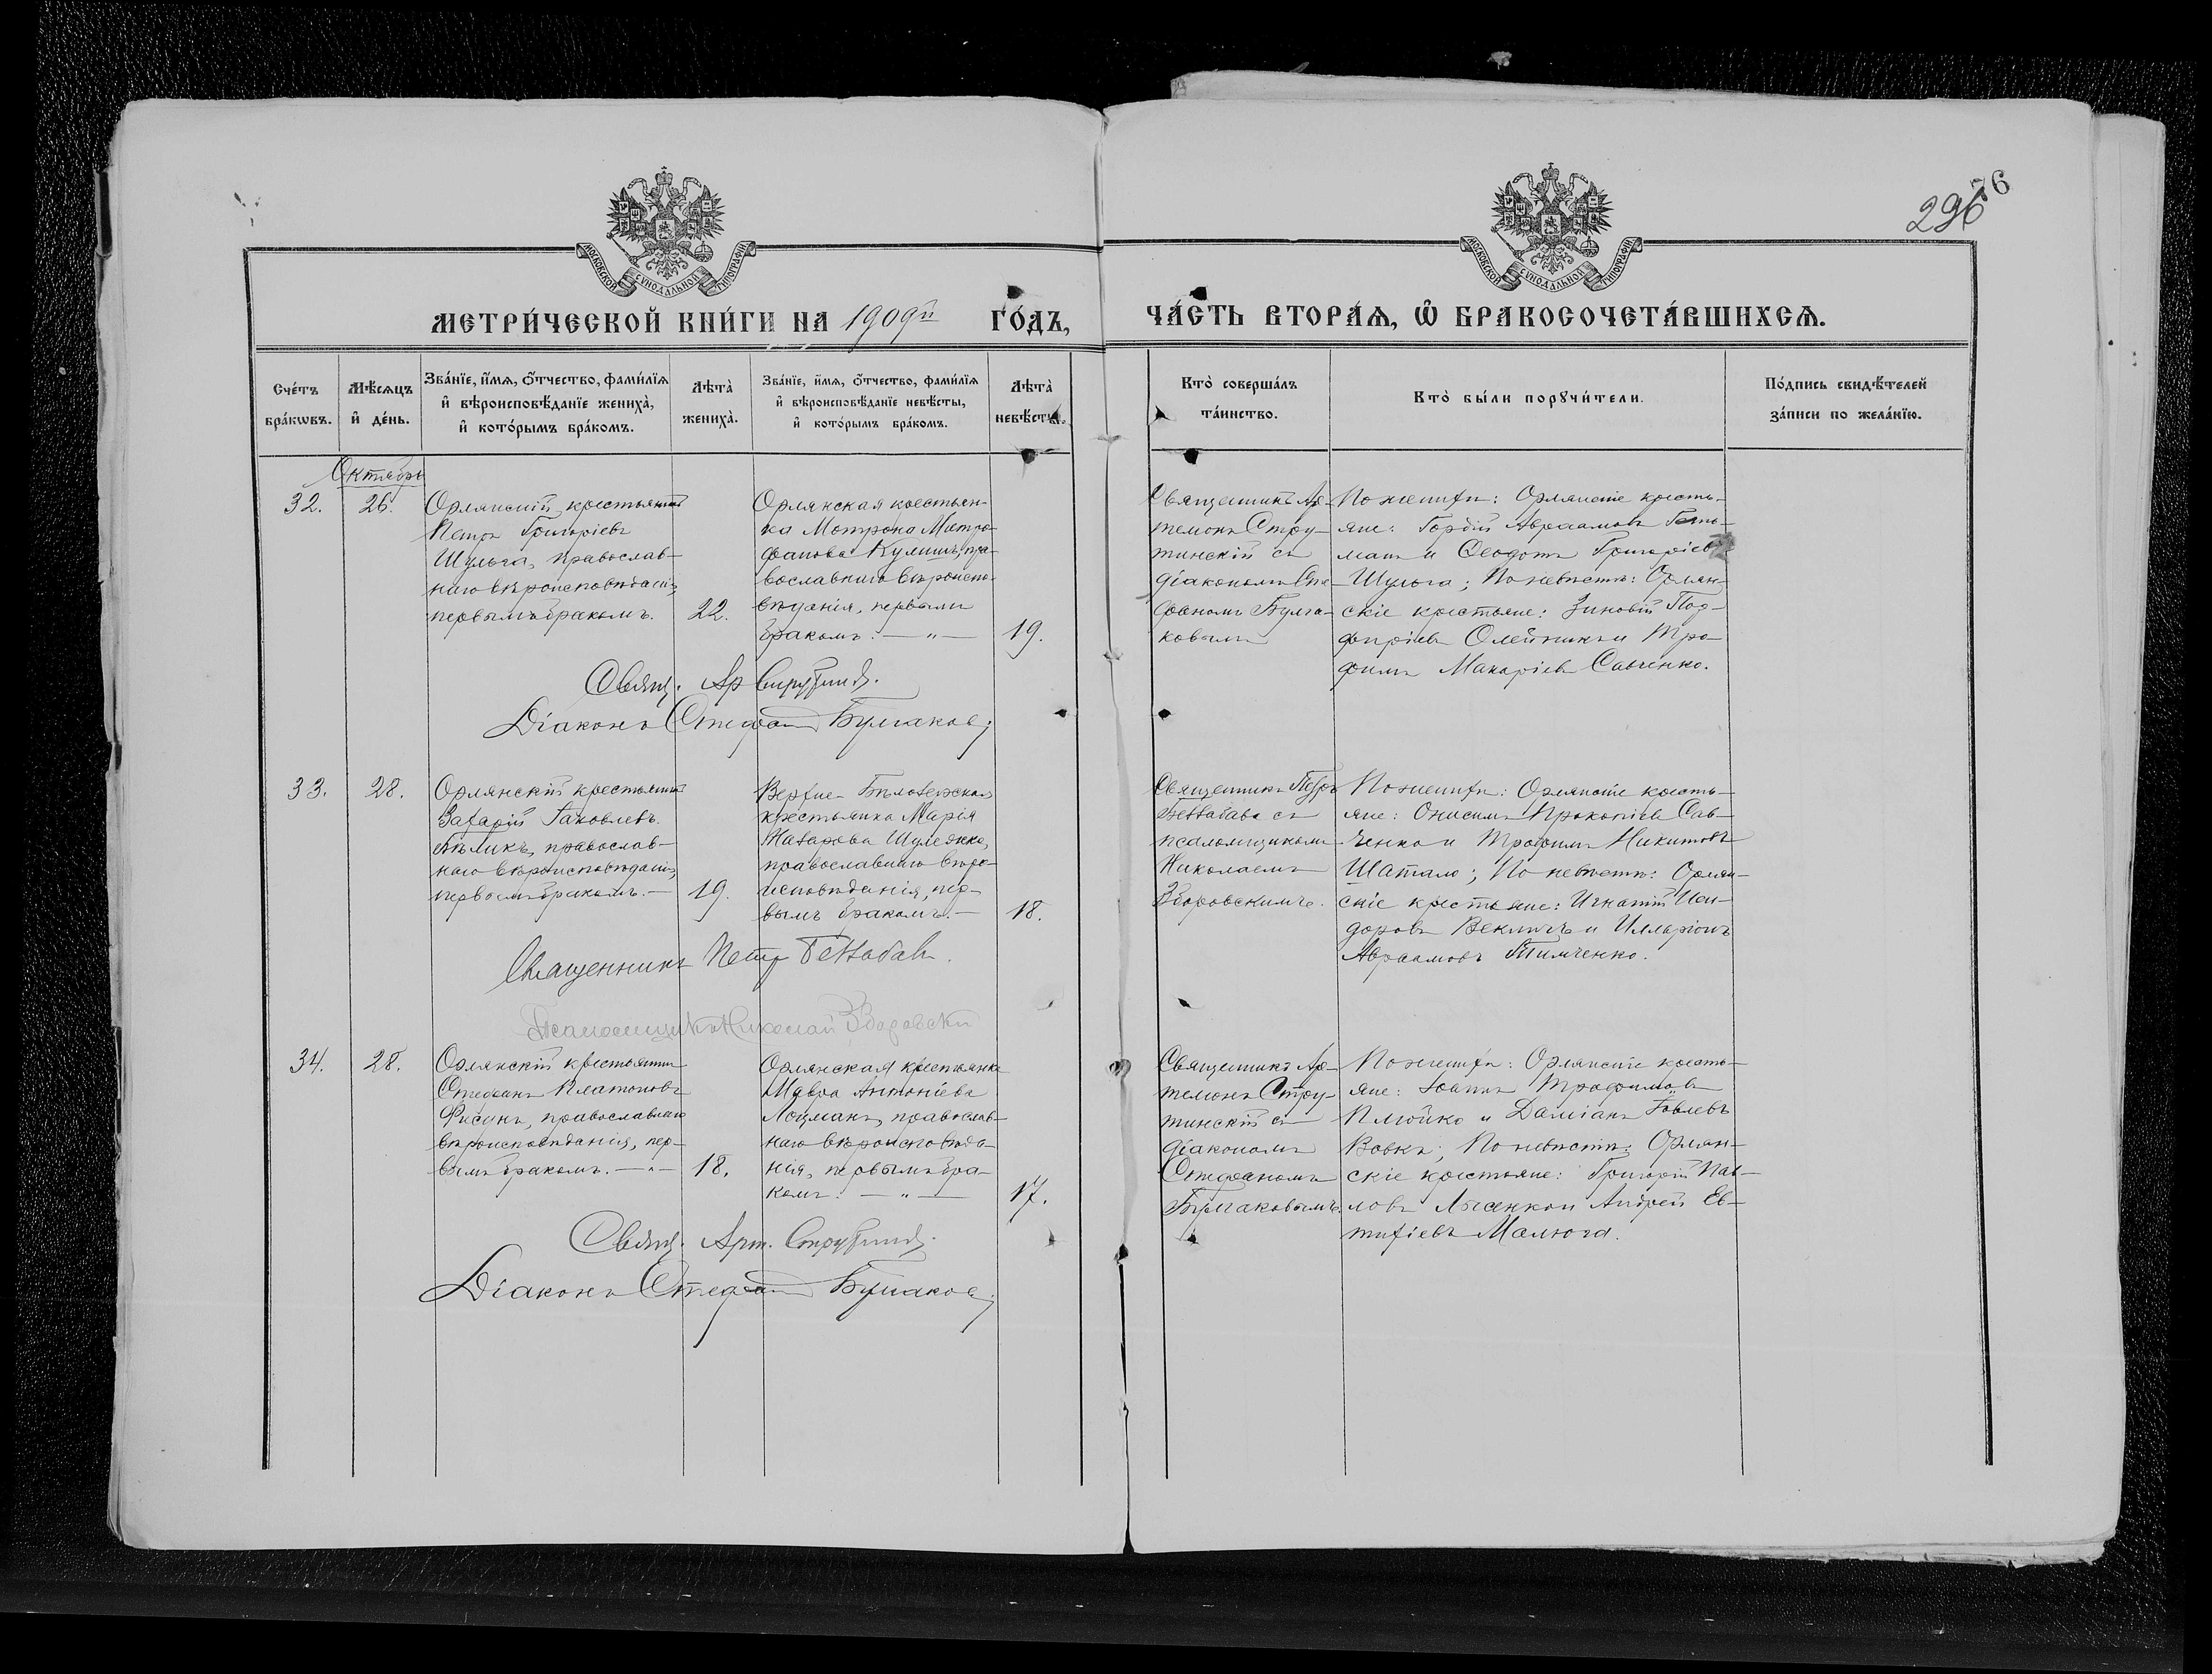 296
76
МОСКОВСКОЙ СѴНОДАЛЬНОЙ ТИПОГРАФІИ
МОСКОВСКОЙ СѴНОДАЛЬНОЙ ТИПОГРАФІИ
МЕТРИ́ЧЕСКОЙ КНИ́ГИ НА 1909й ГО́ДЪ,
ЧА́СТЬ ВТОРА́Ѧ, Ѡ҆ БРАКОСОЧЕТА́ВШИХСѦ.
Сче́тъ бра́кѡвъ.
Мѣ́сѧцъ и҆ де́нь.
Зва́нїе, и҆́мѧ, ѻ҆́тчество, фами́лїѧ
и҆ вѣроисповѣ́данїе жениха̀,
и҆ кото́рымъ бра́комъ.
Лѣта̀ жениха̀.
Зва́нїе, и҆́мѧ, ѻ҆́тчество, фами́лїѧ
и҆ вѣроисповѣ́данїе невѣ́сты,
и҆ кото́рымъ бра́комъ.
Лѣта̀ невѣ́сты.
Кто̀ соверша́лъ
та́инство.
Кто̀ бы́ли порꙋчи́тели.
По́дпись свидѣ́телей
за́писи по жела́нїю.
Октябрь
32.
26.
Орлянскій крестьянинъ
Петръ Григоріевъ
Шульга, православ-
наго вѣроисповѣданія,
первымъ бракомъ.
22.
Орлянская крестьян-
ка Мотрона Митро-
фанова Кулишъ, пра-
вославнаго вѣроиспо-
вѣданія, первымъ
бракомъ. — „ —
19.
Священникъ Ар-
темонъ Стру-
тинскій съ
діакономъ Сте-
фаномъ Булга-
ковымъ
По женихѣ: Орлянскіе кресть-
яне: Гордій Авраамовъ
и Ѳеодотъ Григоріевъ
Шульга; По невѣстѣ: Орлян-
скіе крестьяне: Зиновій Пор-
фиріевъ Олейникъ и Тро-
фимъ Макаріевъ Савченко.
Свящ. Ар Струтинскі.
Діаконъ Стефанъ Булгаковъ
33.
28.
Орлянскій крестьянинъ
Захарій Іаковлевъ
Бѣликъ, православ-
наго вѣроисповѣданія,
первымъ бракомъ. —
19.
Верхне-Бѣлозерская
крестьянка Марія
Назарова Шулежко,
православнаго вѣро-
исповѣданія, пер-
вымъ бракомъ. —
18.
Священникъ Петръ
Беззабава съ
псаломщикомъ
Николаемъ
Зборовскимъ.
По женихѣ: Орлянскіе кресть-
яне: Онисимъ Прокопіевъ Сав-
ченко и Трофимъ Никитовъ
Шатало; По невѣстѣ: Орлян-
скіе крестьяне: Игнатій Иси-
доровъ Векличъ и Илларіонъ
Авраамовъ Тимченко.
Священникъ Петръ Беззабава.
Псаломщикъ Николай Зборовскій
34.
28.
Орлянскій крестьянинъ
Стефанъ Платоновъ
Фисунъ, православнаго
вѣроисповѣданія, пер-
вымъ бракомъ. — „ —
18.
Орлянская крестьянка
Мавра Антоніева
Лоцманъ, православ-
наго вѣроисповѣда-
нія, первымъ бра-
комъ. — „ —
17.
Священникъ Ар-
темонъ Стру-
тинскій съ
діакономъ
Стефаномъ
Булгаковымъ.
По женихѣ: Орлянскіе кресть-
яне: Іоаннъ Трофимовъ
Плюйко и Даміанъ Іовлевъ
Вовкъ; По невѣстѣ: Орлян-
скіе крестьяне: Григорій Пав-
ловъ Лысенко и Андрей Ев-
тихіевъ Малюга.
Свящ. Арт. Струтинскі.
Діаконъ Стефанъ Булгаковъ